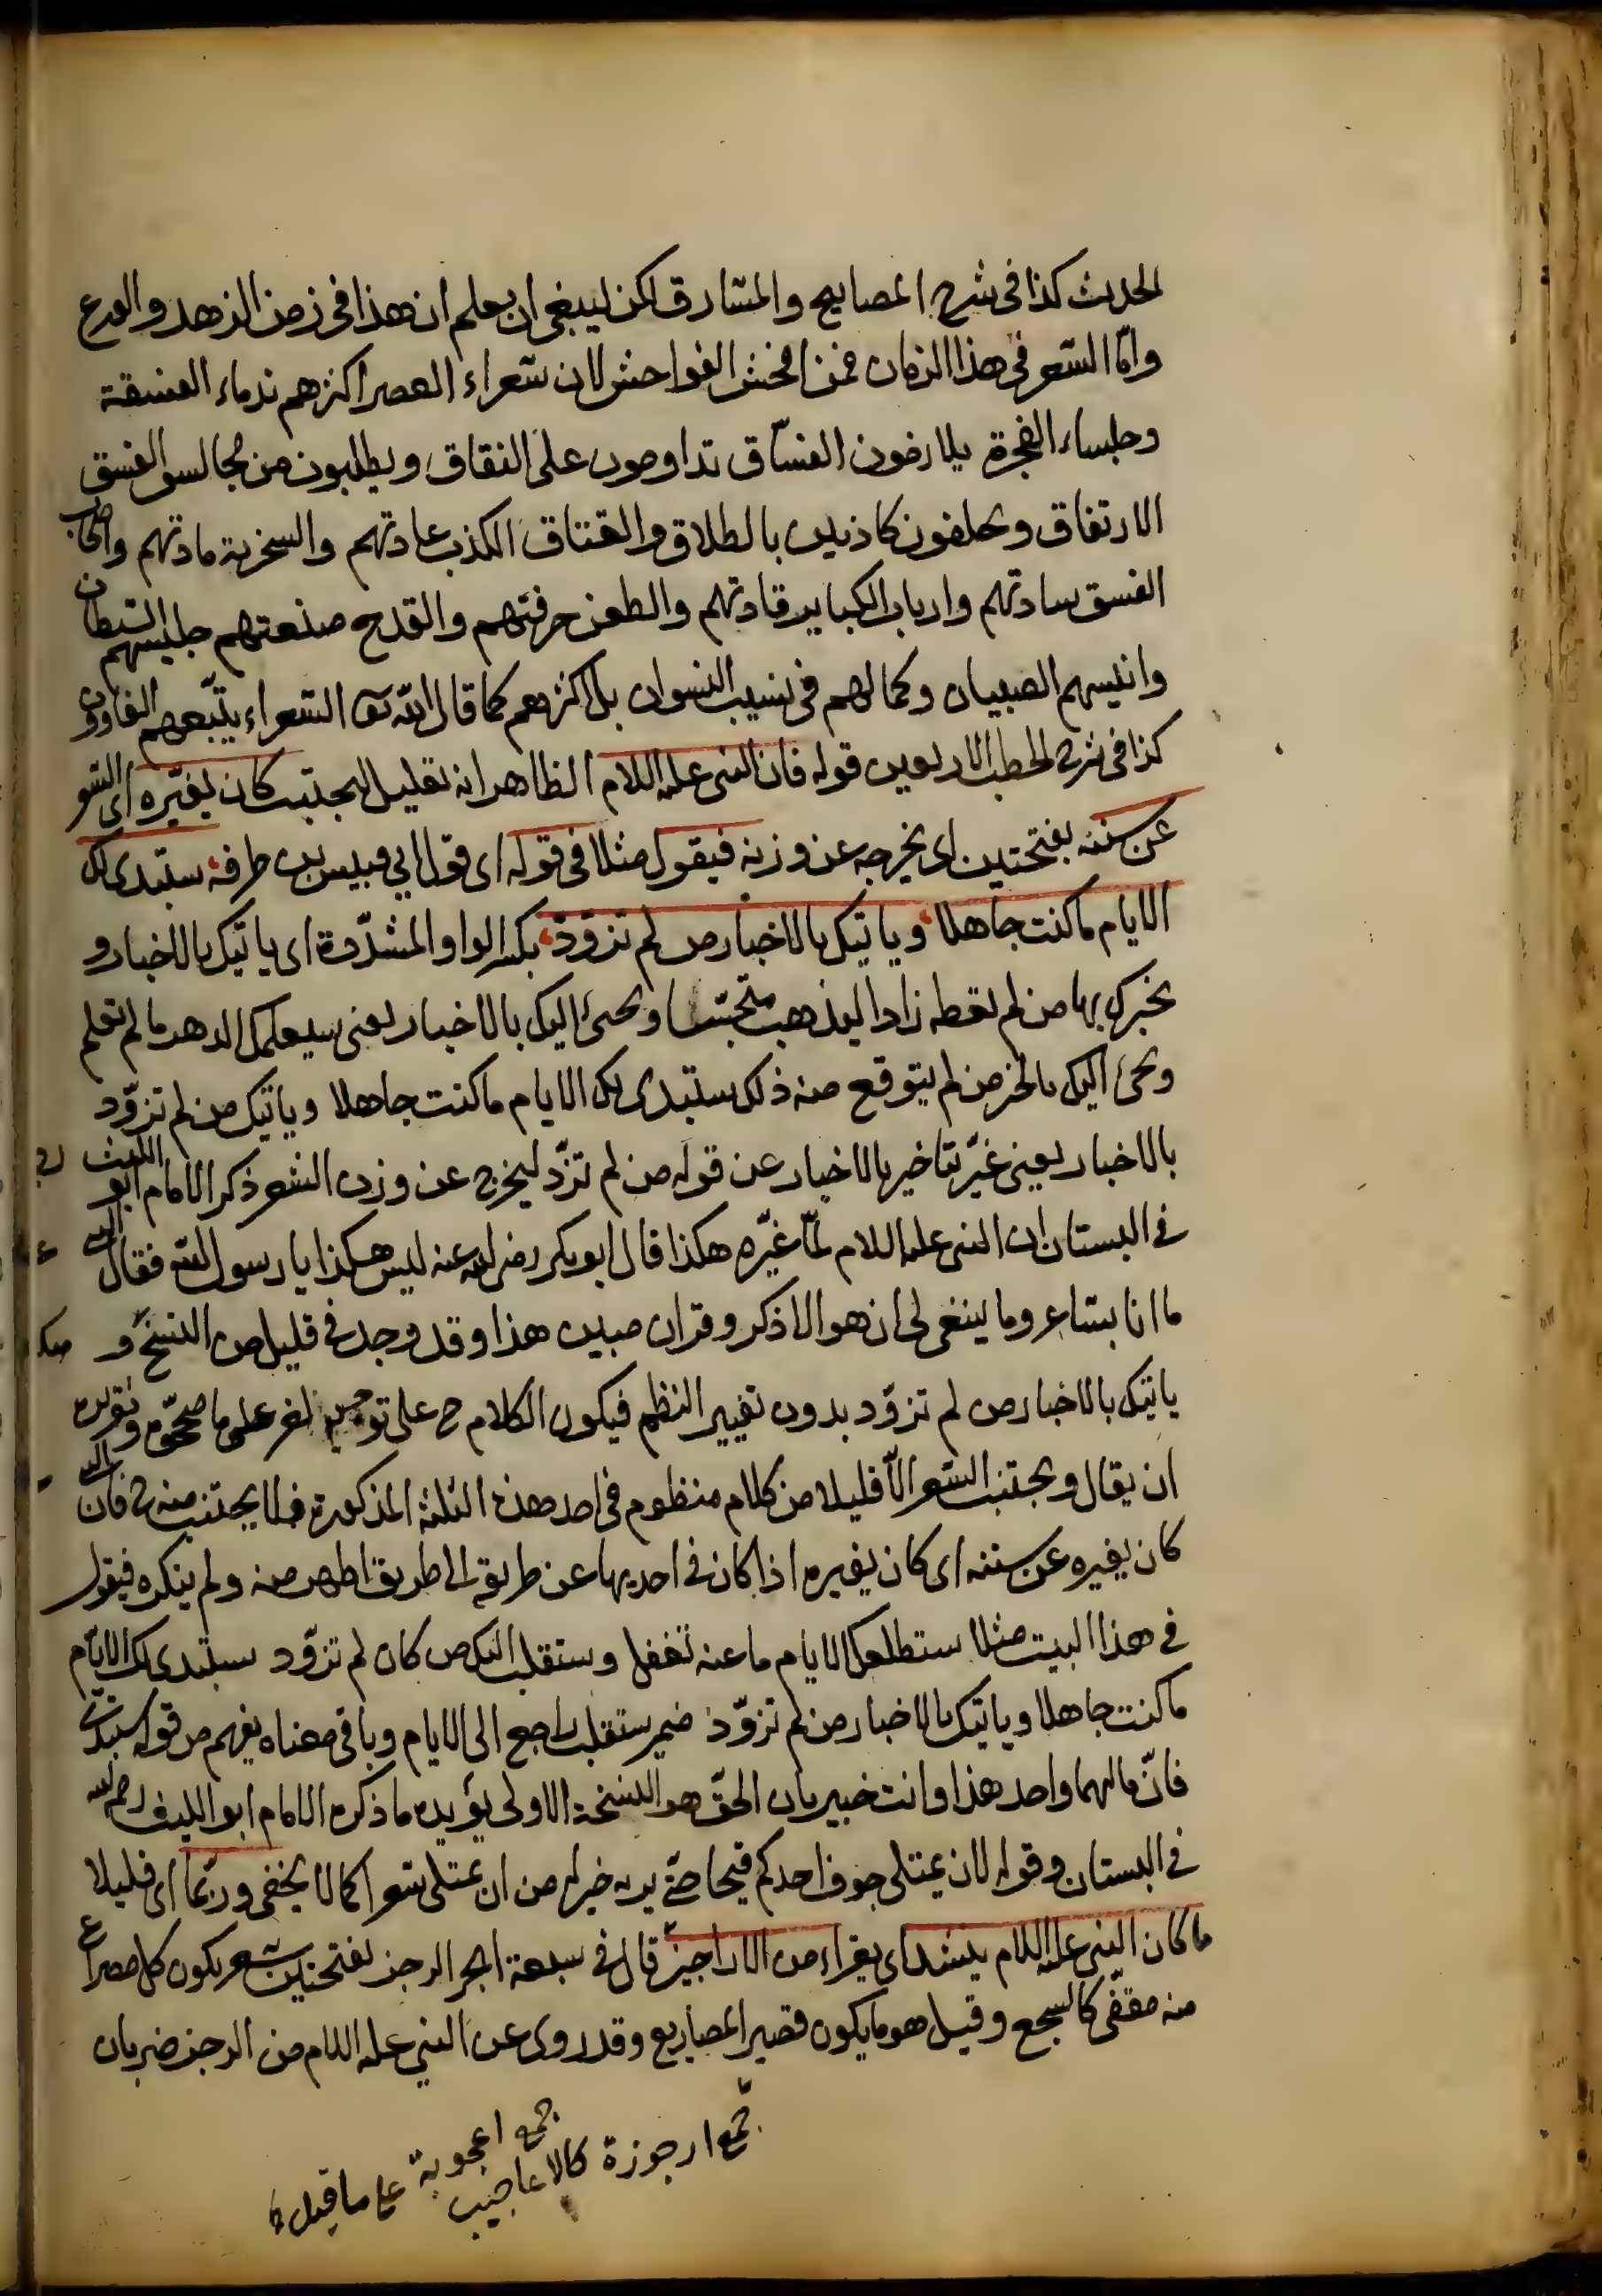 الحديث كذا فى شرح المصابيح والمشارق لكن ينبغى ان يعلم ان هذا فى زمن الزهد والورع
وامّا الشعر فى هذا الزمان فمن افحش الفواحش لان شعراء العصر اكثرهم ندماء الفسقة
وجلساء الفجرة يلازمون الفسّاق تداومون على النفاق ويطلبون من مجالس الفسق
الارتفاق ويحلفون كاذبين بالطلاق والعتاق الكذب عادتهم والسخرية مادتهم واصحاب
الفسق سادتهم وارباب الكباير قادتهم والطعن حرفتهم والقدح صنعتهم جليسهم الشيطان
وانيسهم الصبيان وكمالهم فى نسيب النسوان بل اكثرهم كما قال الله تعا الشعراء يتّبعهم الغاوون
كذا فى شرح الخطب الاربعين قوله فان النبى عليه السلام الظاهر انه تعليل ليجتنب كان يغيّره اى الشعر
عن سننه بفتحتين اى يخرجه عن وزنه فيقول مثلا فى قوله اى قول ابي قيس بن طرفة ستبدى لك
الايام ما كنت جاهلا وياتيك بالاخبار من لم تزوّد بكسر الواو المشدّدة اى ياتيك بالاخبار و
يخبرك بها من لم تعطه زادا ليذهب متجسّسا ويجئ اليك بالاخبار يعنى سيعلمك الدهر ما لم تعلم
ويجئ اليك بالخبر من لم يتوقع منه ذلك ستبدى لك الايام ما كنت جاهلا وياتيك من لم تزوّد
بالاخبار يعنى غيّر بتاخير بالاخبار عن قوله من لم تزوّد ليخرج عن وزن الشعر ذكر الامام ابو الليث
فى البستان ان النبى عليه السلام لمّا غيّره هكذا قال ابو بكر رضى الله عنه ليس هكذا يا رسول الله فقال
ما انا بشاعر وما ينبغى لى ان هو الا ذكر وقران مبين هذا وقد وجد فى قليل من النسخ و
ياتيك بالاخبار من لم تزوّد بدون تغيير النظم فيكون الكلام ح على توجيه اخر على ما صحّحوه وتقريره
ان يقال ويجتنب الشعر الّا قليلا من كلام منظوم فى احد هذه الثلثة المذكورة فلا يجتنب منه ح فان
كان يغيره عن سننه اى كان يغيره اذا كان فى احديها عن طريقه الى طريق اظهر منه ولم ينكره فيقول
فى هذا البيت مثلا ستطلعك الايام ما عنه تغفل وستقلب اليك من كان لم تزوّد ستبدى لك الايّام
ما كنت جاهلا وياتيك بالاخبار من لم تزوّد ضمير ستقلب راجع الى الايام وباقى معناه يفهم من قوله ستبدى
فانّ مالهما واحد هذا وانت خبير بان الحقّ هو النسخة الاولى يؤيده ما ذكره الامام ابو الليث
فى البستان وقوله لان يمتلى جوف احدكم قيحا حتّى يريه خير له من ان يمتلى شعرا كما لا يخفى وربّما اى قليلا
ما كان النبى عليه السلام ينشد اى يقراء من الاراجيز قال فى سبعة ابحر الرجز بفتحتين شعر يكون كل مصراع
منه مقفّى كالسجع وقيل هو ما يكون قصير المصاريع وقد روى عن النبي عليه السلام من الرجز ضربان
جمع ارجوزة كالاعاجيب
جمع اعجوبة على ما قيل